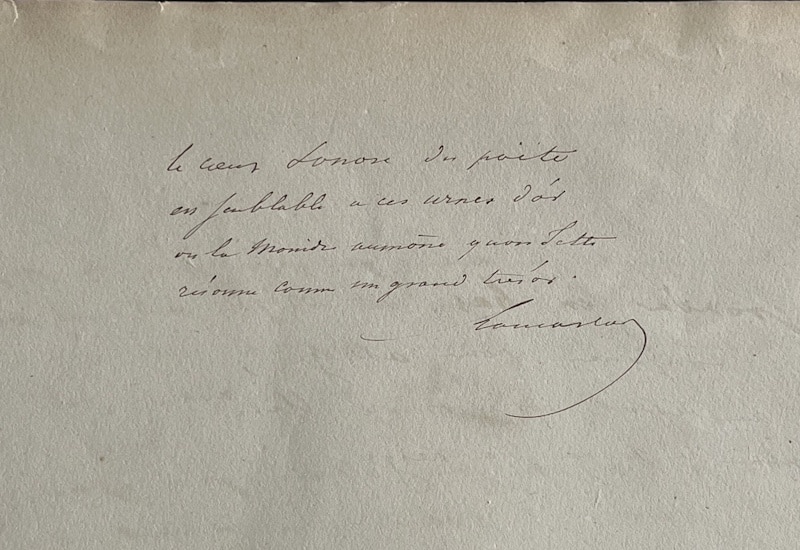 le cœur Sonore du poëte
en semblable a ces urnes d'or
ou la Moindre aumône quon Jette
résonne comme un grand trésor.
Lamartine